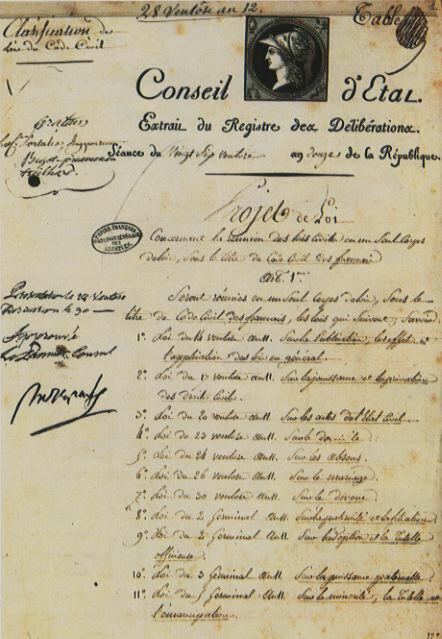 28 Ventôse an 12.
Classification des
lois du Code Civil
Conseil d'Etat.
Extrait du Registre des Délibérations.
Séance du Vingt Sept ventose an Douze de la République.
Projet de Loi
Concernant la réunion des lois civiles en un Seul Corps
de loix, Sous le titre de Code Civil des français
Art. 1er
Seront réunies en un Seul Corps de loix, Sous le
titre de Code Civil des français, les lois qui Suivent, Savoir
1º Loi du 14 ventose an 11. Sur la Publication, les effets et
l'application des lois en général.
2º Loi du 17 ventose an 11. Sur la jouissance et la privation
des droits Civils.
3º Loi du 20 ventose an 11. Sur les actes de l'Etat Civil
4º Loi du 23 ventose an 11. Sur le domicile
5º Loi du 24 ventose an 11. Sur les absens.
6º Loi du 26 ventose an 11. Sur le mariage.
7º Loi du 30 ventose an 11. Sur le divorce
8º Loi du 2 Germinal an 11. Sur la paternité et la filiation
9º Loi du 2 Germinal an 11. Sur l'adoption et la tutelle
officieuse.
10º Loi du 3 Germinal an 11. Sur la puissance paternelle
11º Loi du 5 Germinal an 11. Sur la minorité, la tutelle et
l'émancipation.
Approuvé